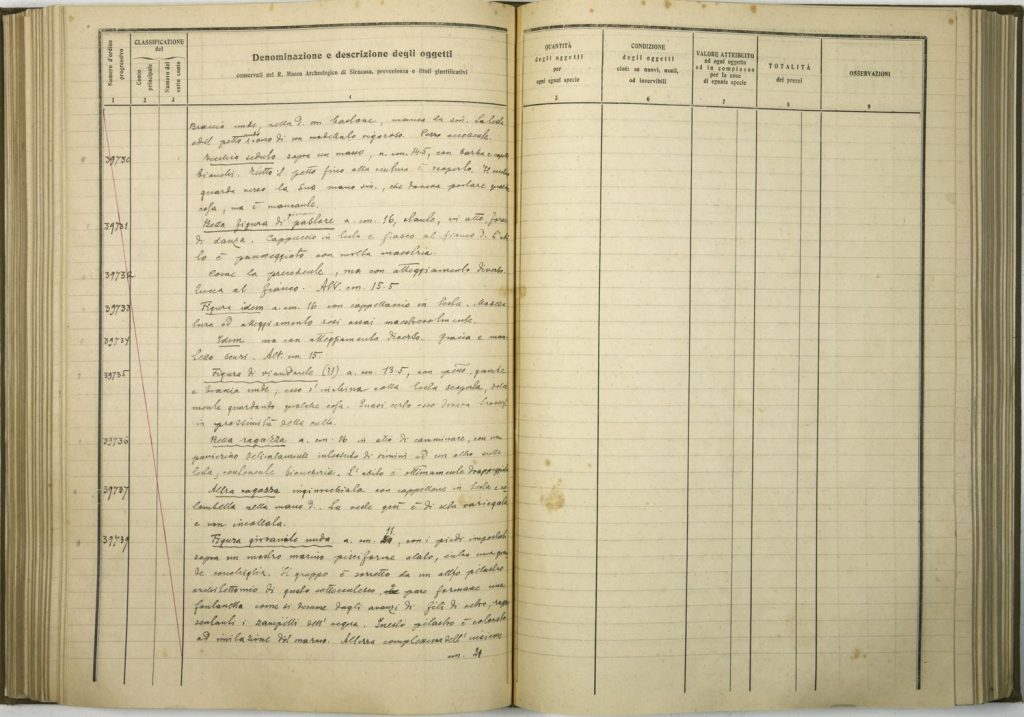 Numero d'ordine progressivo
CLASSIFICAZIONE del
Conto principale
Numero del sotto conto
Denominazione e descrizione degli oggetti
conservati nel R. Museo Archeologico di Siracusa, provenienza e titoli giustificativi
QUANTITÀ degli oggetti per ogni egual specie
CONDIZIONE degli oggetti cioè: se nuovi, usati, od inservibili
VALORE ATTRIBUITO ad ogni oggetto ed in complesso per le cose di eguale specie
TOTALITÀ dei prezzi
OSSERVAZIONI
1 2 3 4 5 6 7 8 9
Braccia nude, nella d. un bastone, manca la sin. La testa
ed il petto nudo sono di un modellato vigoroso. Pezzo eccellente.
39730 Vecchio seduto sopra un masso, a. cm. 14.5, con barba e capelli
bianchi. Tutto il petto fino alla cintura è scoperto. Il
guarda verso la sua mano sin., che doveva portare qualche
cosa, ma è mancante.
39731 Bella figura di pastore a. cm. 16, stante, in atto forse
di danza. Cappuccio in testa e fiasco al fianco d. L'abi
to è panneggiato con molta maestria.
39732 Come la precedente, ma con atteggiamento diverso.
Zucca al fianco. Alt. cm. 15.5
39733 Figura idem a. cm. 16 con cappellaccio in testa.
tura ed atteggiamento resi assai maestrevolmente.
39734 Idem ma con atteggiamento diverso. Giacca e man
tello Alt. cm. 15.
39735 Figura di viandante (?) a. cm. 13.5, con gambe
e braccia nude; esso s'inchina colla testa scoperta,
mente guardando qualche cosa. Quasi certo esso doveva trovarsi
in prossimità della culla.
39736 Bella ragazza a. cm. 16 in atto di camminare, con un
panierino delicatamente intessuto di vimini ed un altro sulla
testa, contenente biancheria. L'abito è ottimamente drappeggiato
39737 Altra ragazza inginocchiata con cappellone in testa e
nella mano d. La veste è di seta variegata
e non incollata.
39739 Figura giovanile nuda a. cm. 11, con i piedi impostati
sopra un mostro marino pisciforme alato, entro una gran
de conchiglia. Il gruppo è sorretto da un alto pilastro
architettonico di gusto settecentesco, pare formare una
fontanella come si desume dagli avanzi di fili di vetro, rappre
sentanti i zampilli dell'acqua. Questo pilastro è colorato
ad imitazione del marmo. Altezza complessiva dell'insieme
cm. 21